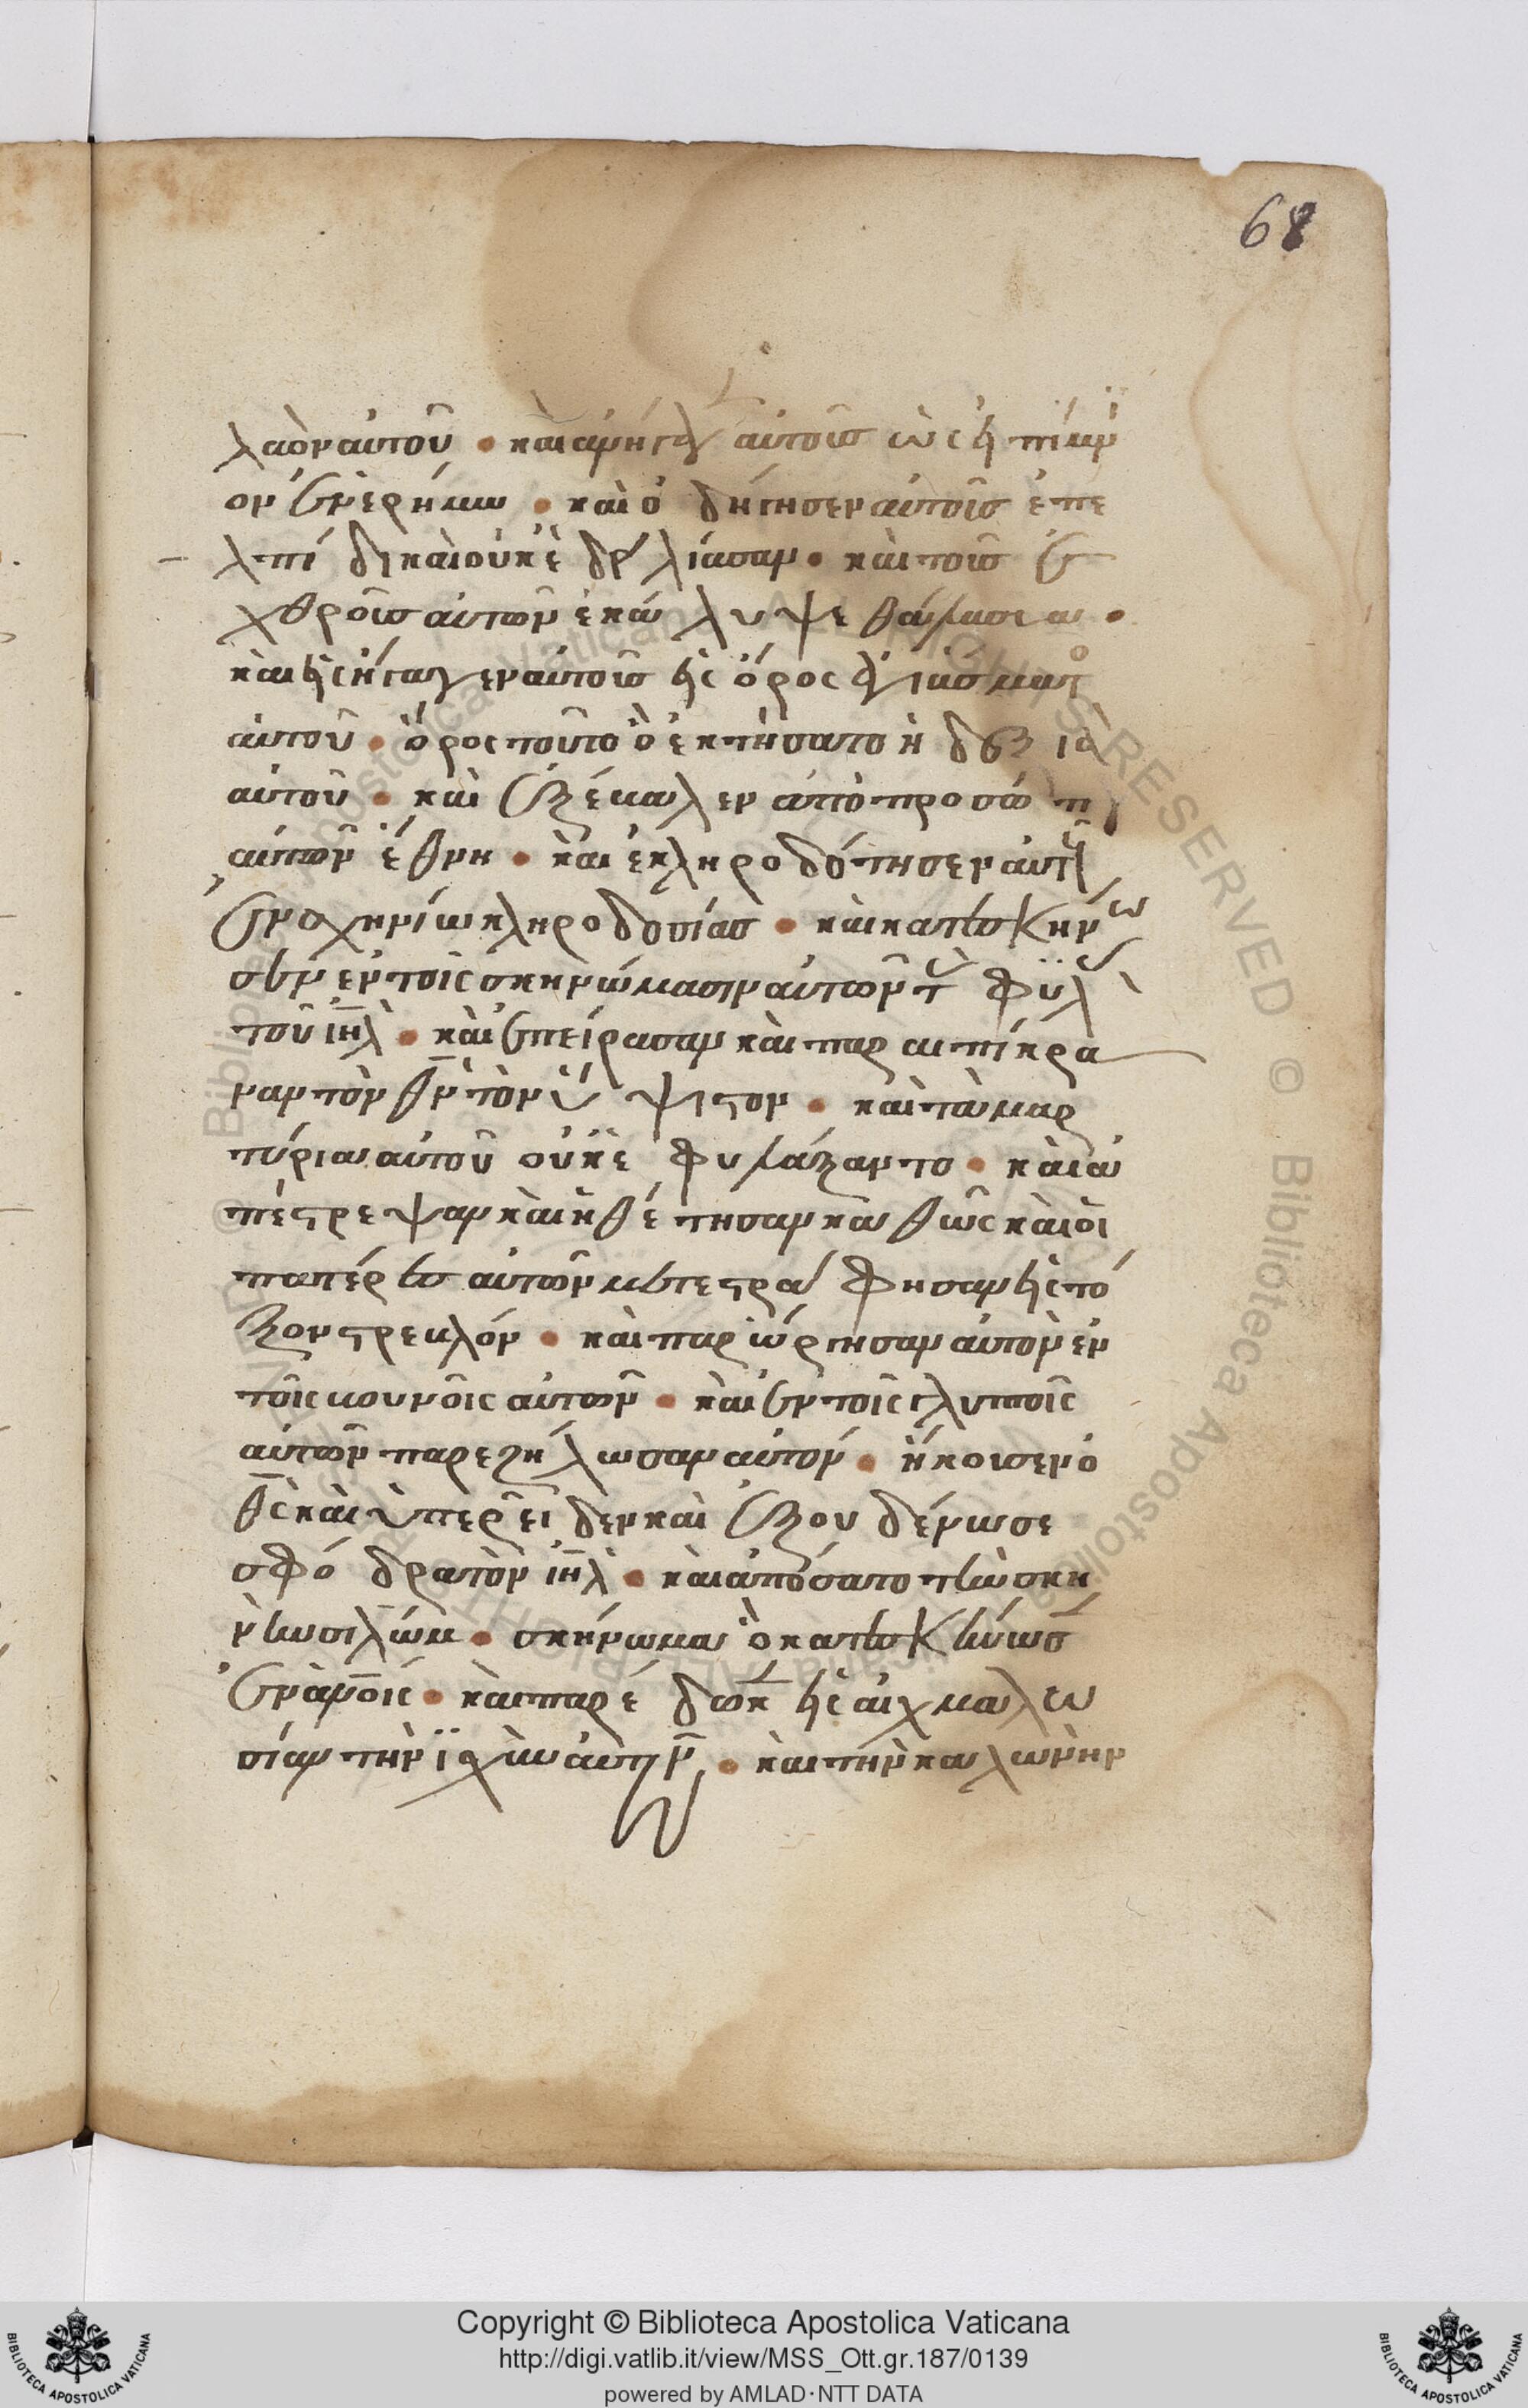 68
λαὸν αὐτοῦ • καὶ ἀνήγαγ αὐτοὺς ὡσεὶ ποίμνι
ον ἐν ἐρήμω • καὶ ὁδήγησεν αὐτοὺς ἐπ ἐ
λπίδι καὶ οὐκ ἐδειλίασαν • καὶ τοὺς ἐ
χθροὺς αὐτῶν ἐκάλυψε θάλασσα •
καὶ εἰσήγαγεν αὐτοὺς εἰς ὄρος ἁγιάσματο
αὐτοῦ • ὄρος τοῦτο ὃ ἐκτήσατο ἡ δεξιὰ
αὐτοῦ • καὶ ἐξέβαλεν ἀπὸ προσώπου
αὐτῶν ἔθνη • καὶ ἐκληροδότησεν αὐτοὺς
ἐν σχηνίω κληροδοσίας • καὶ κατεσκήνω
σεν ἐν τοῖς σκηνώμασιν αὐτῶν τὰς φυλὰς
τοῦ ιηλ • καὶ ἐπείρασαν καὶ παρεπίκρα
ναν τὸν θν τὸν ὕψιστον • καὶ τὰ μαρ
τύρια αὐτοῦ οὐκ ἐφυλάξαντο • καὶ ἀ
πέστρεψαν καὶ ἠθέτησαν καθὼς καὶ οἱ
πατέρες αὐτῶν μετεστράφησαν εἰς τό
ξον στρεβλόν • καὶ παρώργησαν αὐτὸν ἐν
τοῖς βουνοῖς αὐτῶν • καὶ ἐν τοῖς γλυπτοῖς
αὐτῶν παρεζήλωσαν αὐτόν • ἤκουσεν ὁ
θς καὶ ὑπερεῖδεν καὶ ἐξουδένωσε
σφόδρα τὸν ιηλ • καὶ ἀπόσατο τὴν σκη
νὴν σιλώμ • σκήνωμα ὃ κατεσκήνωσεν
ἐν ανοις • καὶ παρέδωκεν εἰς αἰχμαλω
σίαν τὴν ἰσχὺν αὐτῶν • καὶ τὴν καλωνὴν
Copyright © Biblioteca Apostolica Vaticana
http://digi.vatlib.it/view/MSS_Ott.gr.187/0139
powered by AMLAD·NTT DATA
BIBLIOTECA APOSTOLICA VATICANA
BIBLIOTECA APOSTOLICA VATICANA